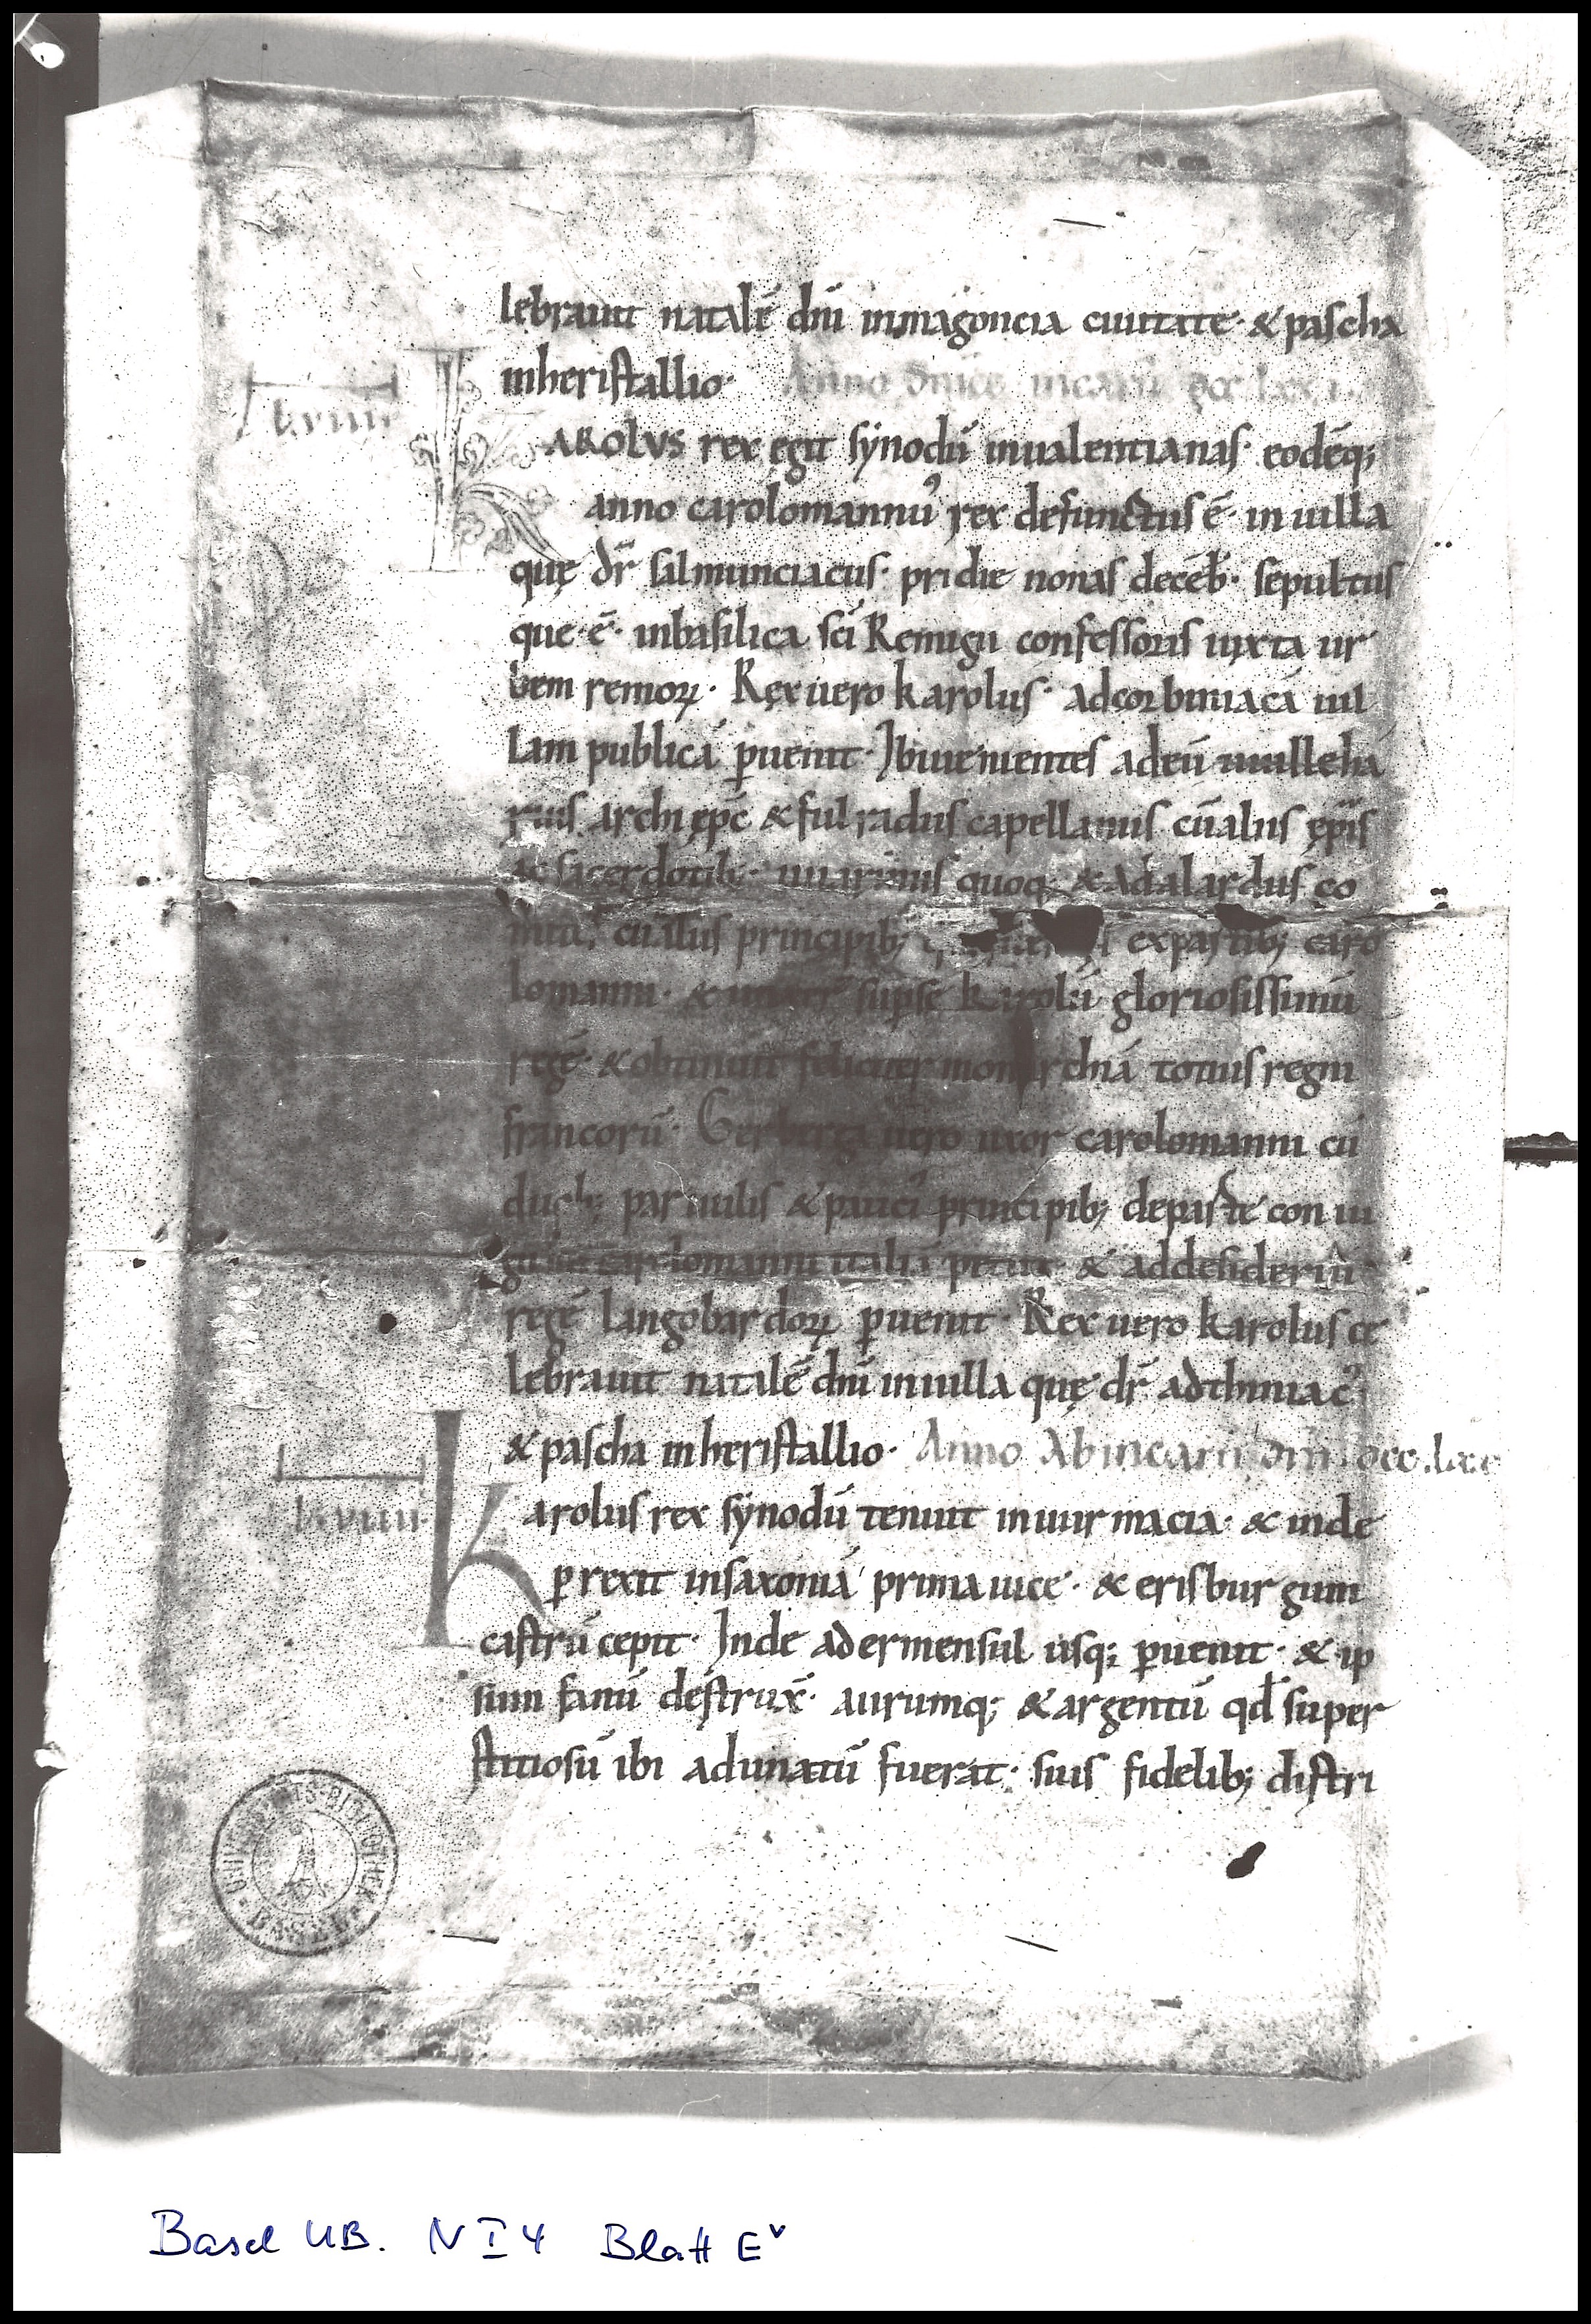 lebrauit natalē dn̄i inmagoncia ciuitate· & pascha
inheristallio· Anno dnīce incarn̄ dcc lxx i.
lxviii
KAROLVS rex egit sẏnodū inualentianas· eodēq;
anno carolomannuꝰ rex defunctus ē· in uilla
quę dr̄ salmunciacus· pridie nonas decēb̄· sepultus
que·ē· inbasilica sc̄i Remigii confessoris iuxta ur
bem remoꝝ· Rex uero karolus· adcorbiniacā uil
lam publicā ꝑuenit· Ibiuenientes adeū uuillehā
rius archiep̄c & fulradus capellanus cū aliis ep̄is
& sacerdotib; uuarinus quoq; & Adalardus co
cū aliis principib; expartib; caro
lomanni· & sup se karolū gloriosissimū
regē· & obtinuit feliciter monarchiā totius regni
francorū· Gerberga uero uxor carolomanni cū
duob; paruulis & pauciꝰ principib; departe con iu
gis carlomanni italiā petiit· & addesideriū
regē langobardoꝝ ꝑuenit· Rex uero karolus ce
lebrauit natalē dn̄i inuilla quę dr̄ adthiniacꝰ
& pascha inheristallio· Anno Ab incarn̄ dn̄i dcc.lxx
lxviiii·
Karolus rex sẏnodū tenuit inuurmacia· & inde
ꝑrexit insaxoniā prima uice· & erisburgum
castrū cepit· Inde adermensul usq; ꝑuenit· & ip
sum fanū destrux̄· aurumq; & argentū qd̄ super
stitiosū ibi adunatū fuerat· suis fidelib; distri
UNIVERSITÄTS-BIBLIOTHEK BASEL
Basel UB. N I 4 Blatt Eᵛ